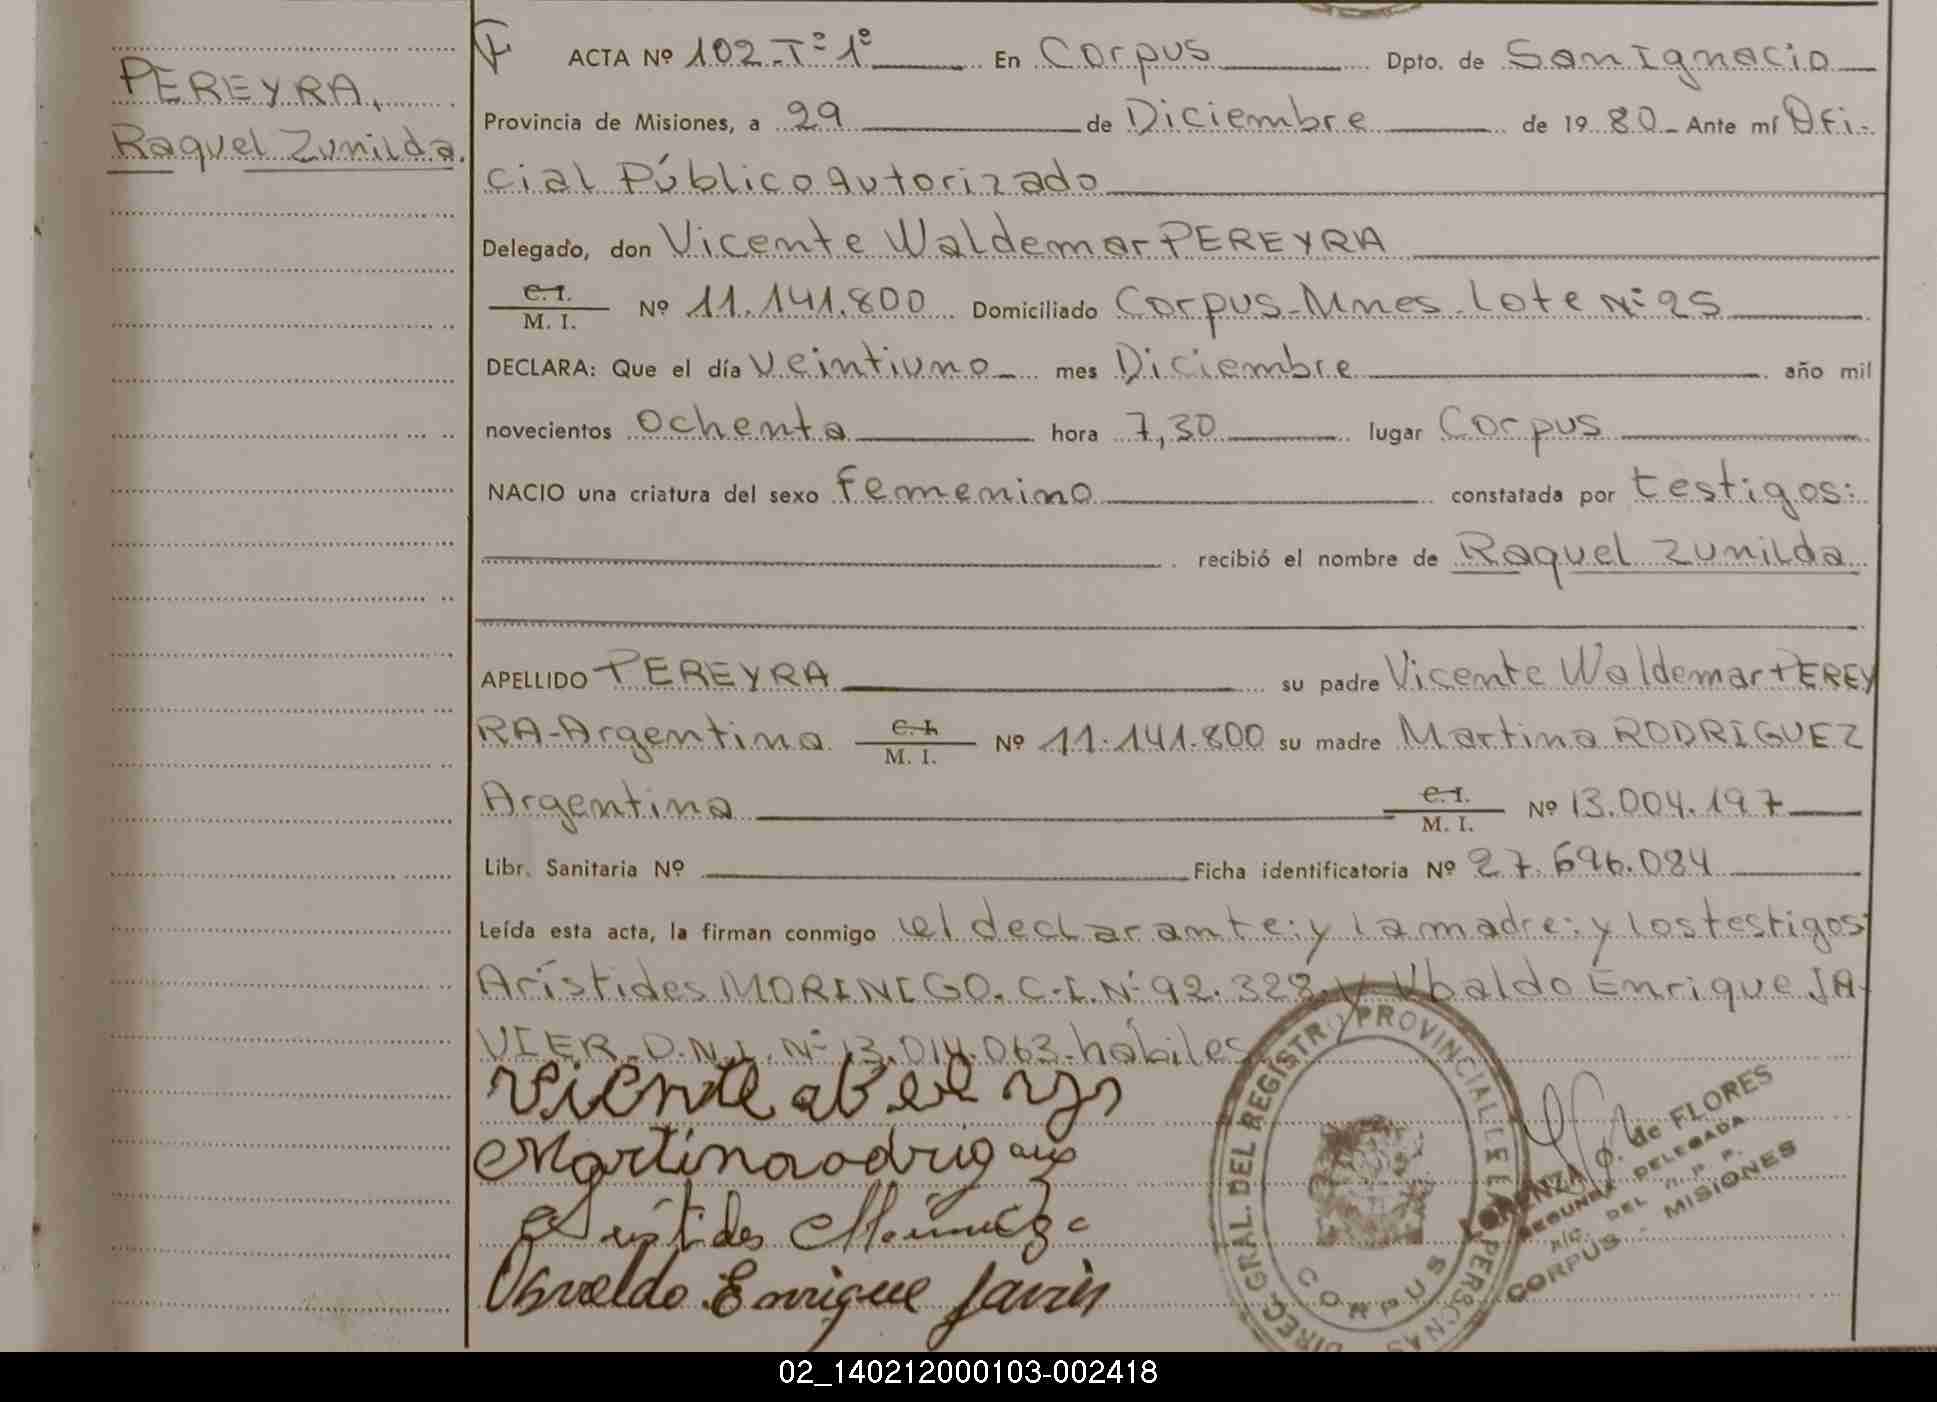 PEREYRA,
Raquel Zunilda.
ACTA Nº 102.Tº 1º En Corpus Dpto. de San Ignacio
Provincia de Misiones, a 29 de Diciembre de 1980 Ante mí Ofi-
cial Público Autorizado
Delegado, don Vicente Waldemar PEREYRA
C. I.
M. I. Nº 11.141.800 Domiciliado Corpus-Mnes. Lote Nº 25
DECLARA: Que el día veintiuno mes Diciembre año mil
novecientos ochenta hora 7,30 lugar Corpus
NACIO una criatura del sexo femenino constatada por testigos:
recibió el nombre de Raquel Zunilda
APELLIDO PEREYRA su padre Vicente Waldemar PEREY
RA-Argentina C. I.
M. I. Nº 11.141.800 su madre Martina RODRIGUEZ
Argentina C. I.
M. I. Nº 13.004.197
Libr. Sanitaria Nº Ficha identificatoria Nº 27.696.084
Leída esta acta, la firman conmigo el declarante: y la madre: y los testigos:
Arístides MORINIGO. C.I. Nº 92.328. y Ubaldo Enrique JA-
VIER. D.N.I. Nº 13.014.063. hábiles
Martina rodrigues
Osvaldo Enrique Javier
DIREC. GRAL. DEL REGISTRO PROVINCIAL DE LAS PERSONAS
CORPUS
LORENZA O. de FLORES
SEGUNDA DELEGADA
A/C. DEL R. P. P.
CORPUS - MISIONES
02_140212000103-002418